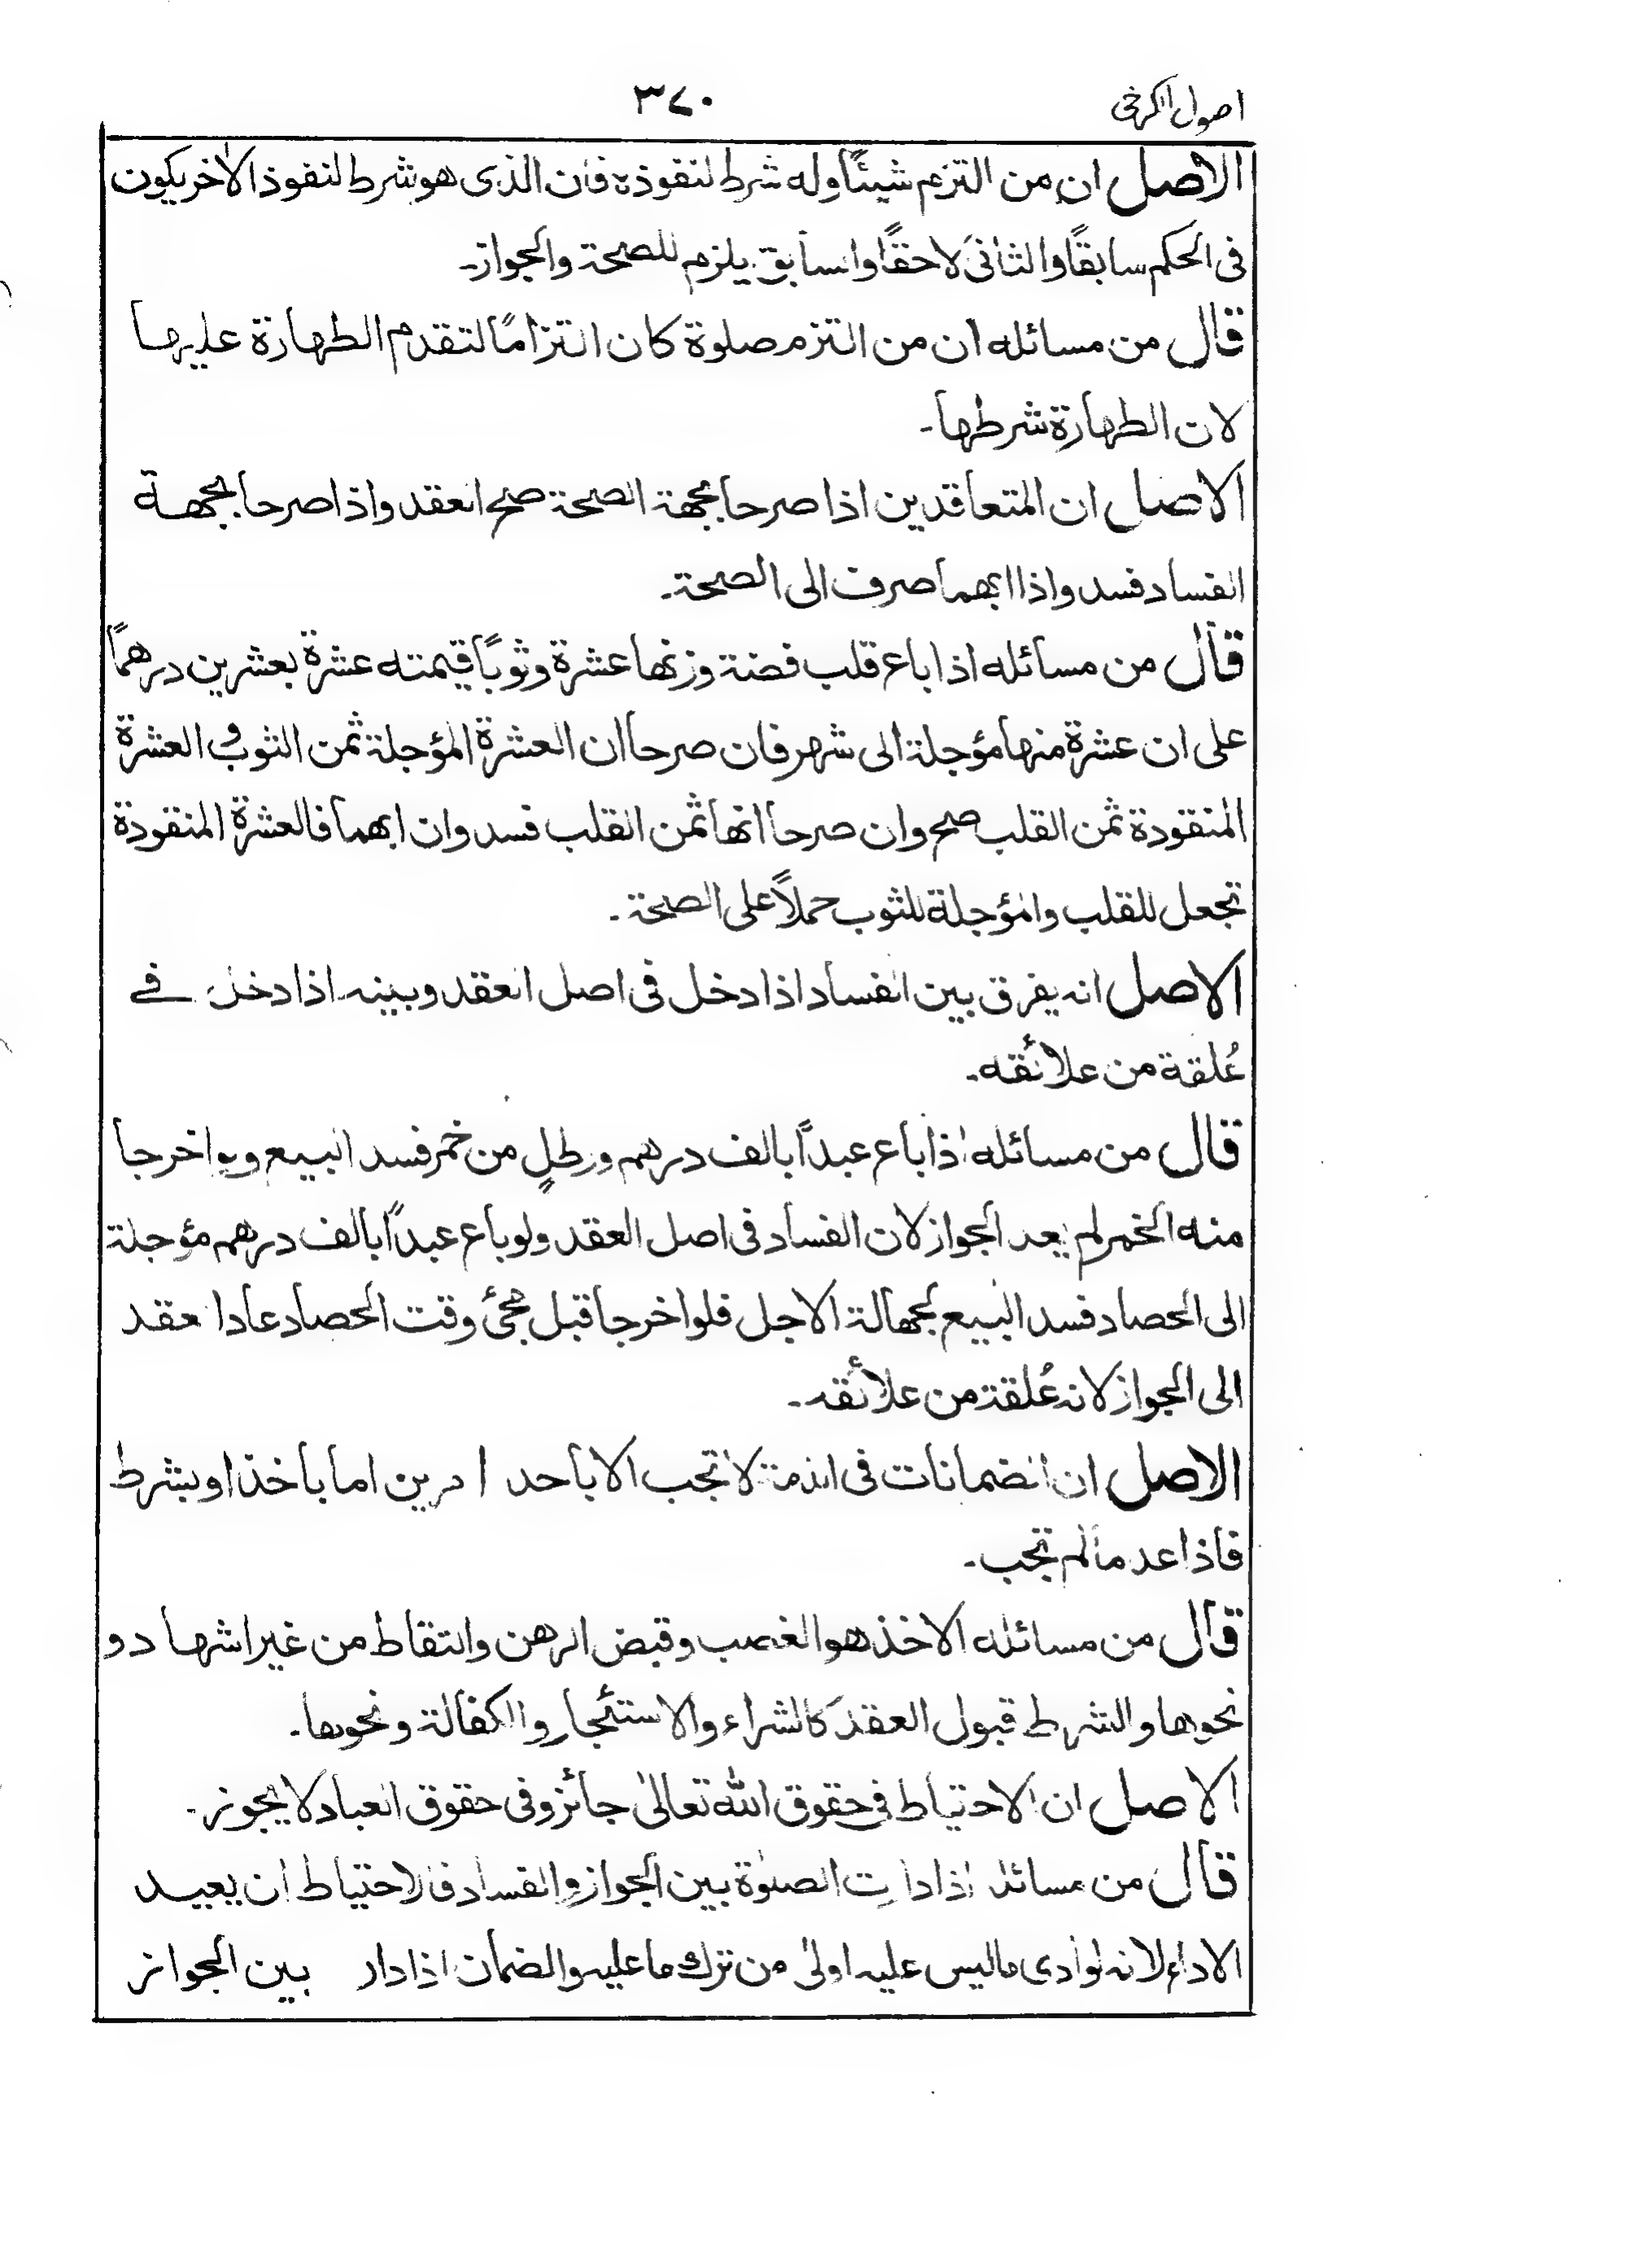 اصول الكرخي
٣٧٠
الاصل ان من التزم شيئًا وله شرط لنفوذه فان الذى هو شرط لنفوذ الاخر يكون
فى الحكم سابقًا والثانى لاحقًا والسابق يلزم للصحة والجواز۔
قال من مسائله ان من التزم صلوة كان التزامًا لتقدم الطهارة عليها
لان الطهارة شرطها۔
الاصل ان المتعاقدين اذا صرحا بجهة الصحة صح العقد واذا صرحا بجهة
الفساد فسد واذا ابهما صرف الى الصحة۔
قال من مسائله اذا باع قلب فضة وزنها عشرة وثوبًا قيمته عشرة بعشرين درهمًا
على ان عشرة منها مؤجلة الى شهر فان صرحا ان العشرة المؤجلة ثمن الثوب و العشرة
المنقودة ثمن القلب صح وان صرحا انها ثمن القلب فسد وان ابهما فالعشرة المنقودة
تجعل للقلب والمؤجلة للثوب حملاً على الصحة۔
الاصل انه يفرق بين الفساد اذا دخل فى اصل العقد وبينه اذا دخل فے
عُلقة من علائقه۔
قال من مسائله اذا باع عبدًا بالف درهم ورطلٍ من خمر فسد البيع ولو اخرجا
منه الخمر لم يعد الجواز لان الفساد فى اصل العقد ولو باع عبدًا بالف درهم مؤجلة
الى الحصاد فسد البيع لجهالة الاجل فلو اخرجا قبل مجئ وقت الحصاد عاد العقد
الى الجواز لانه عُلقة من علائقه۔
الاصل ان الضمانات فى الذمة لا تجب الا باحد امرين اما باخذ او بشرط
فاذا عدما لم تجب۔
قال من مسائله الاخذ هو الغصب وقبض الرهن والتقاط من غير اشهاد و
نحوها والشرط قبول العقد كالشراء والاستئجار والكفالة ونحوها۔
الاصل ان الاحتياط فى حقوق الله تعالىٰ جائز وفى حقوق العباد لا يجوز۔
قال من مسائله اذا دارت الصلوٰة بين الجواز والفساد فالاحتياط ان يعيد
الاداء لانه لو أدى ما ليس عليه اولىٰ من ترك ما عليه والضمان اذا دار بين الجواز